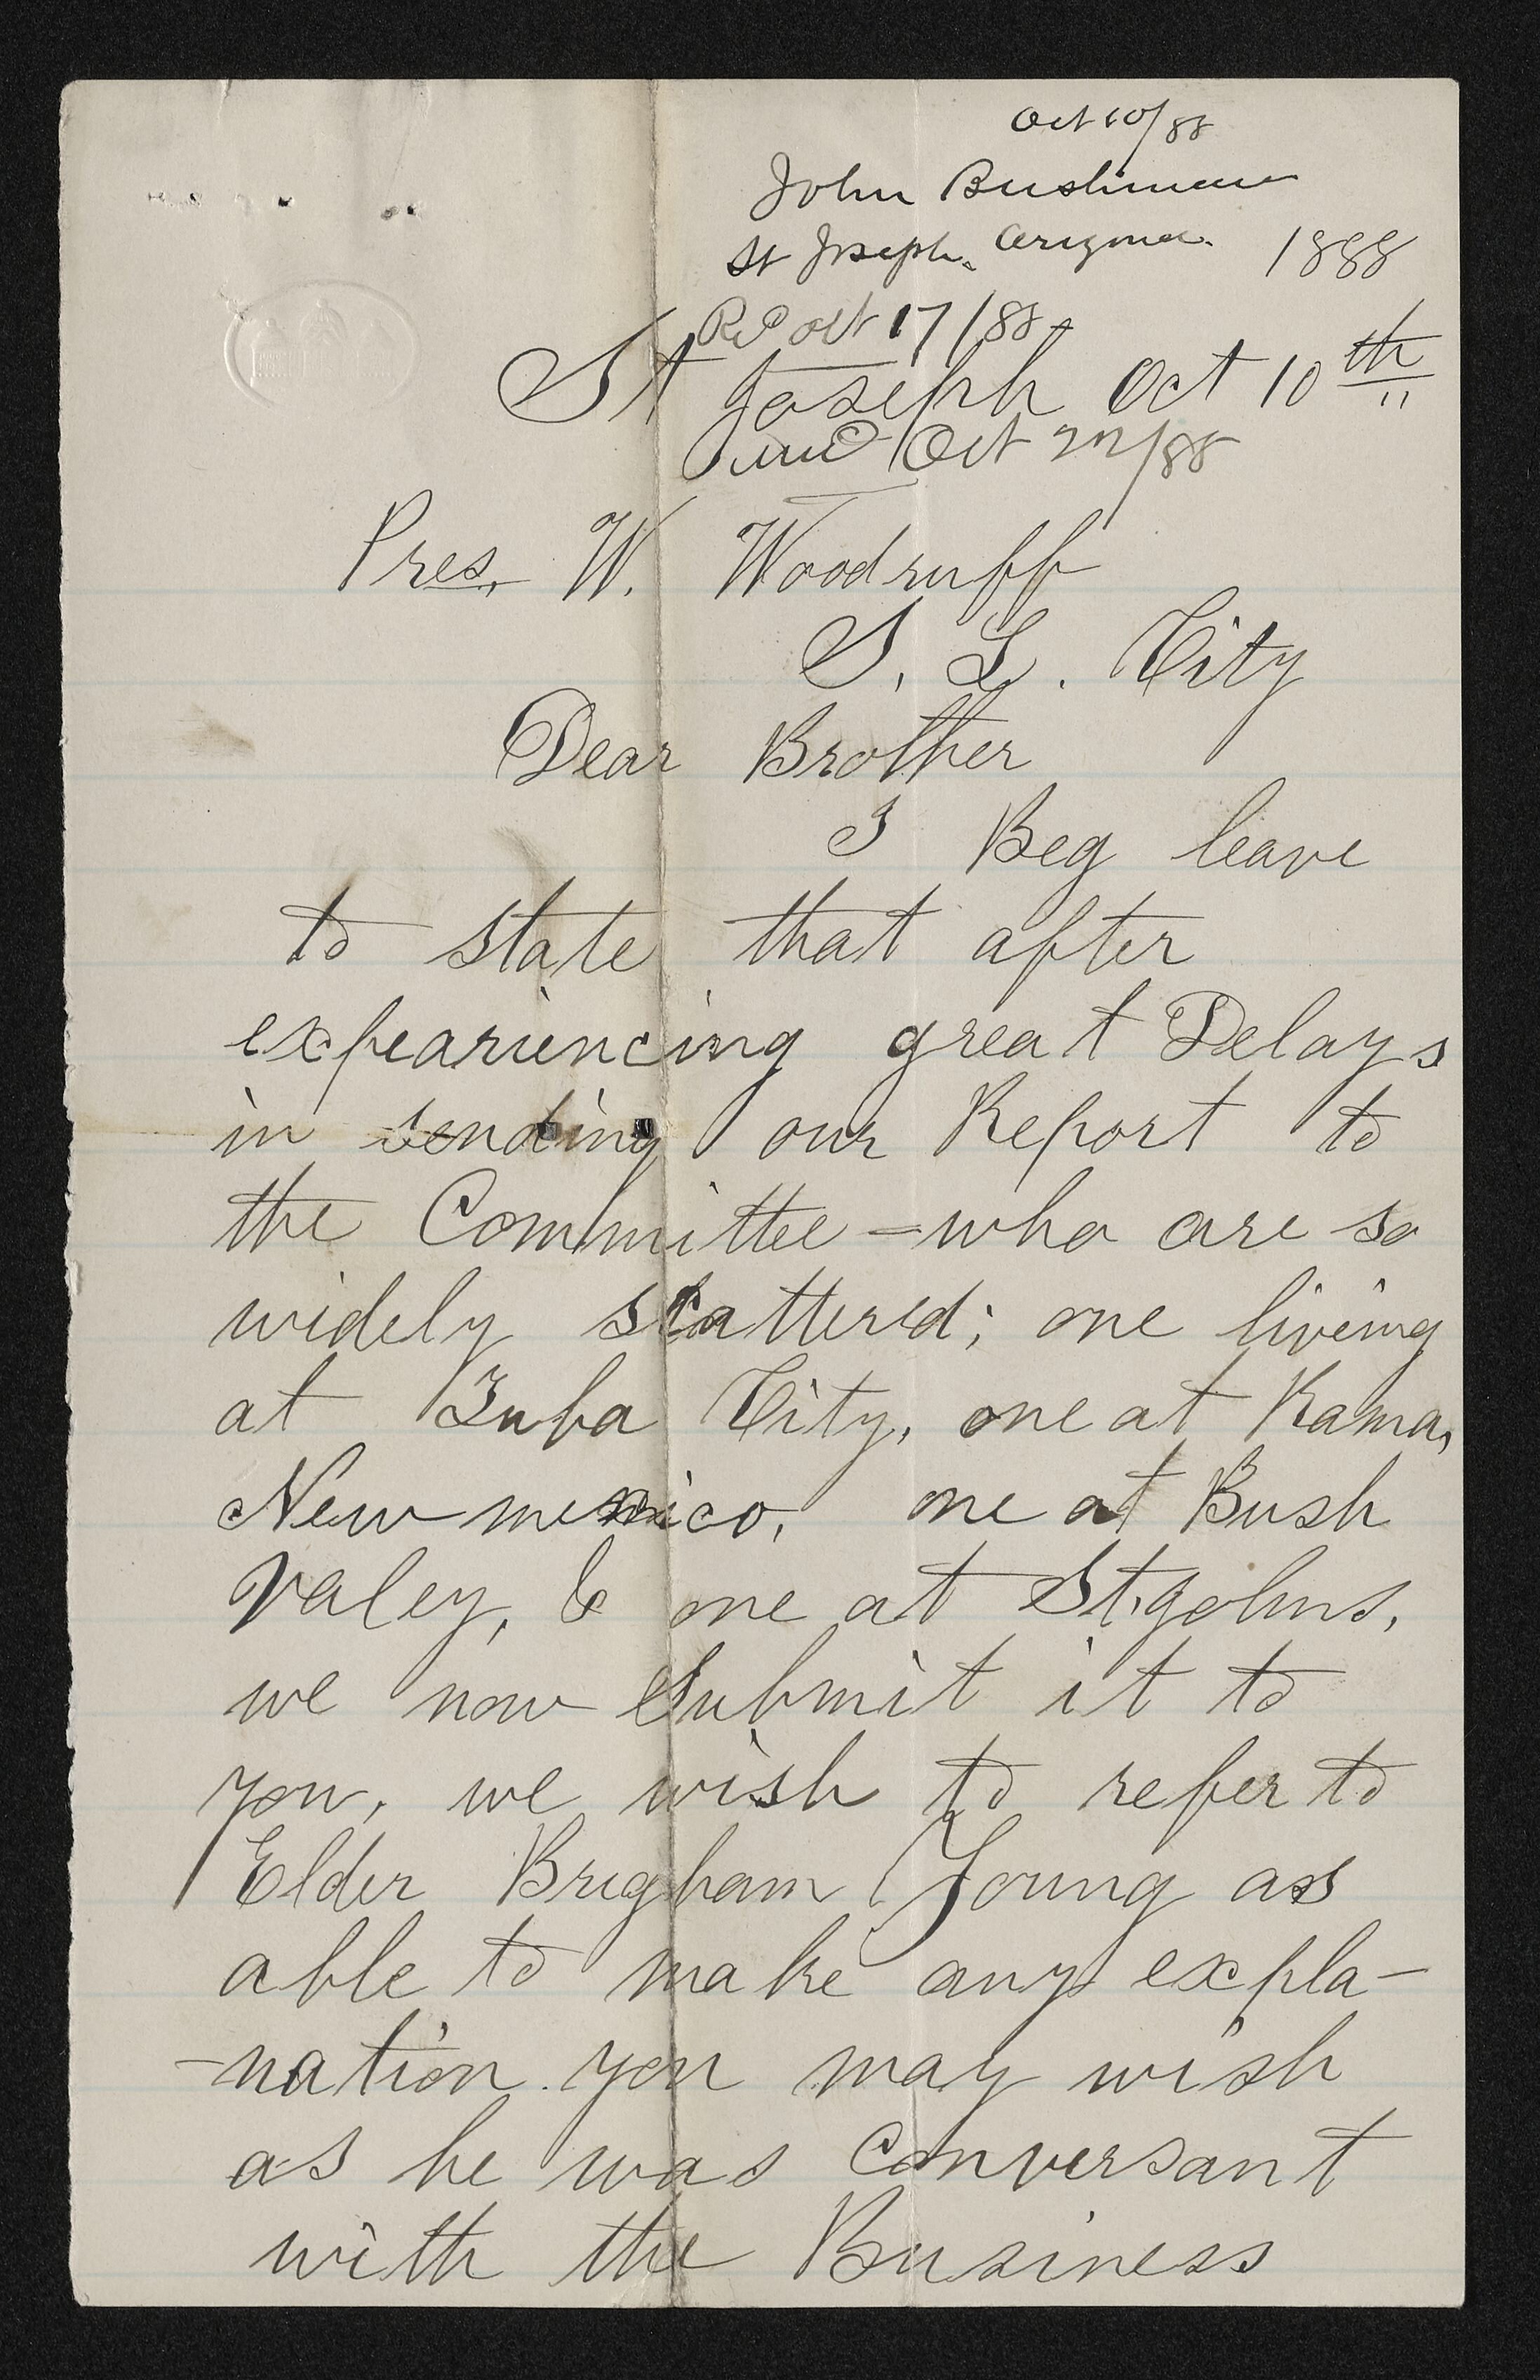 Oct 10/88
John Bushman
St Joseph. Arizona. 1888
Rcd oct 17/88
St Joseph Oct 10th
Oct 22/88
Pres. W. Woodruff
S. L. City
Dear Brother
I Beg leave
to state that after
expeariencing great Delays
in sending our Report to
the Committee - who are so
widely scattered; one living
at Tuba City, one at Rama,
New mexico, one at Bush
Valey, & one at St. Johns,
we now submit it to
you, we wish to refer to
Elder Brigham Young as
able to make any expla-
-nation you may wish
as he was Conversant
with the Business